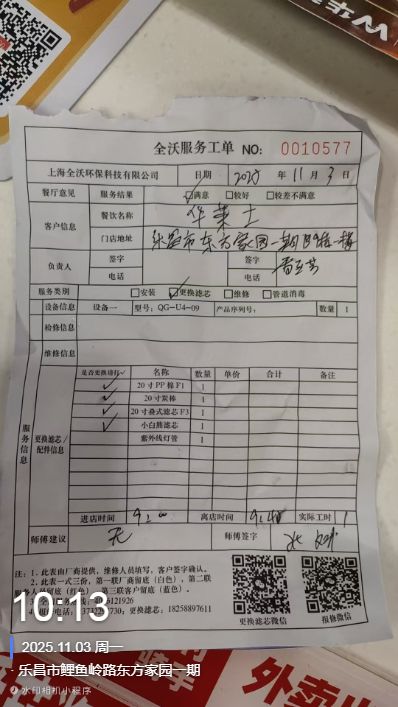 全沃服务工单 NO: 0010577
上海全沃环保科技有限公司 日期 2025 年 11 月 3 日
餐厅意见 服务结果 ☑满意 □较好 □较差不满意
客户信息 餐饮名称 华莱士
门店地址 乐昌市东方家园一期
负责人 签字 签字
电话 电话
服务类别 □安装 ☑更换滤芯 □维修 □管道消毒
设备信息 设备一 型号: QG-U4-09 产品序列号: 数量 1
检修信息
维修信息
服务信息
更换滤芯/配件信息
是否更换请打✓ 名称 数量 单价 合计 备注
✓ 20寸PP棉F1 1
✓ 20寸炭棒 1
✓ 20寸叠式滤芯F3 1
✓ 小白熊滤芯 1
紫外线灯管 1
进店时间 9:00 离店时间 9:40 实际工时 1
师傅建议 无 师傅签字
注: 1. 此表由厂商提供, 维修人员填写, 客户签字确认。
2. 此表一式三份, 第一联厂商留底(白色), 第二联
人员留底(红色), 第三联客户留底(蓝色)。
更换滤芯: 18258897611
更换滤芯微信 报修微信
10:13
2025.11.03 周一
乐昌市鲤鱼岭路东方家园一期
水印相机小程序
外卖出